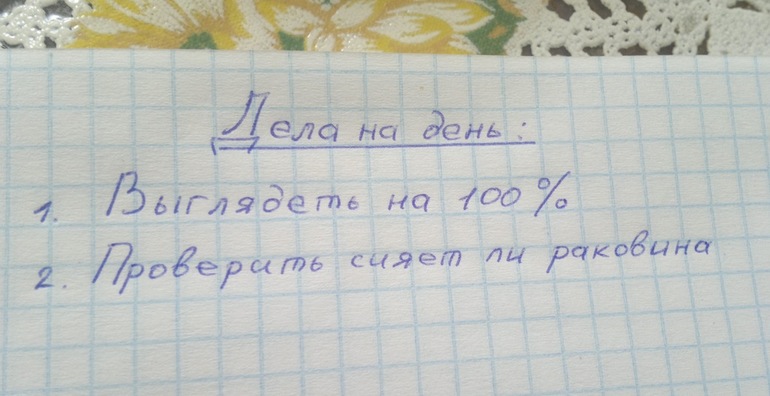 Дела на день:
1. Выглядеть на 100%
2. Проверить сияет ли раковина